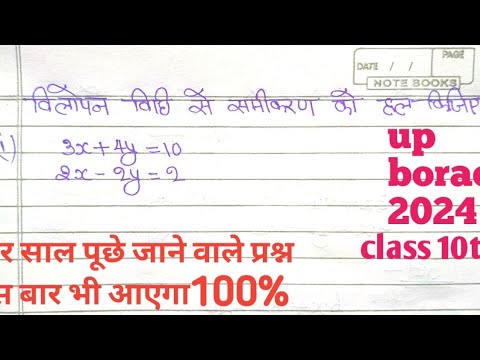 PAGE
DATE / /
NOTE BOOKS
विलोपन विधि से समीकरण को हल किजिए
i) 3x + 4y = 10
2x - 2y = 2
up
borad
2024
class 10t
र साल पूछे जाने वाले प्रश्न
स बार भी आएगा 100%